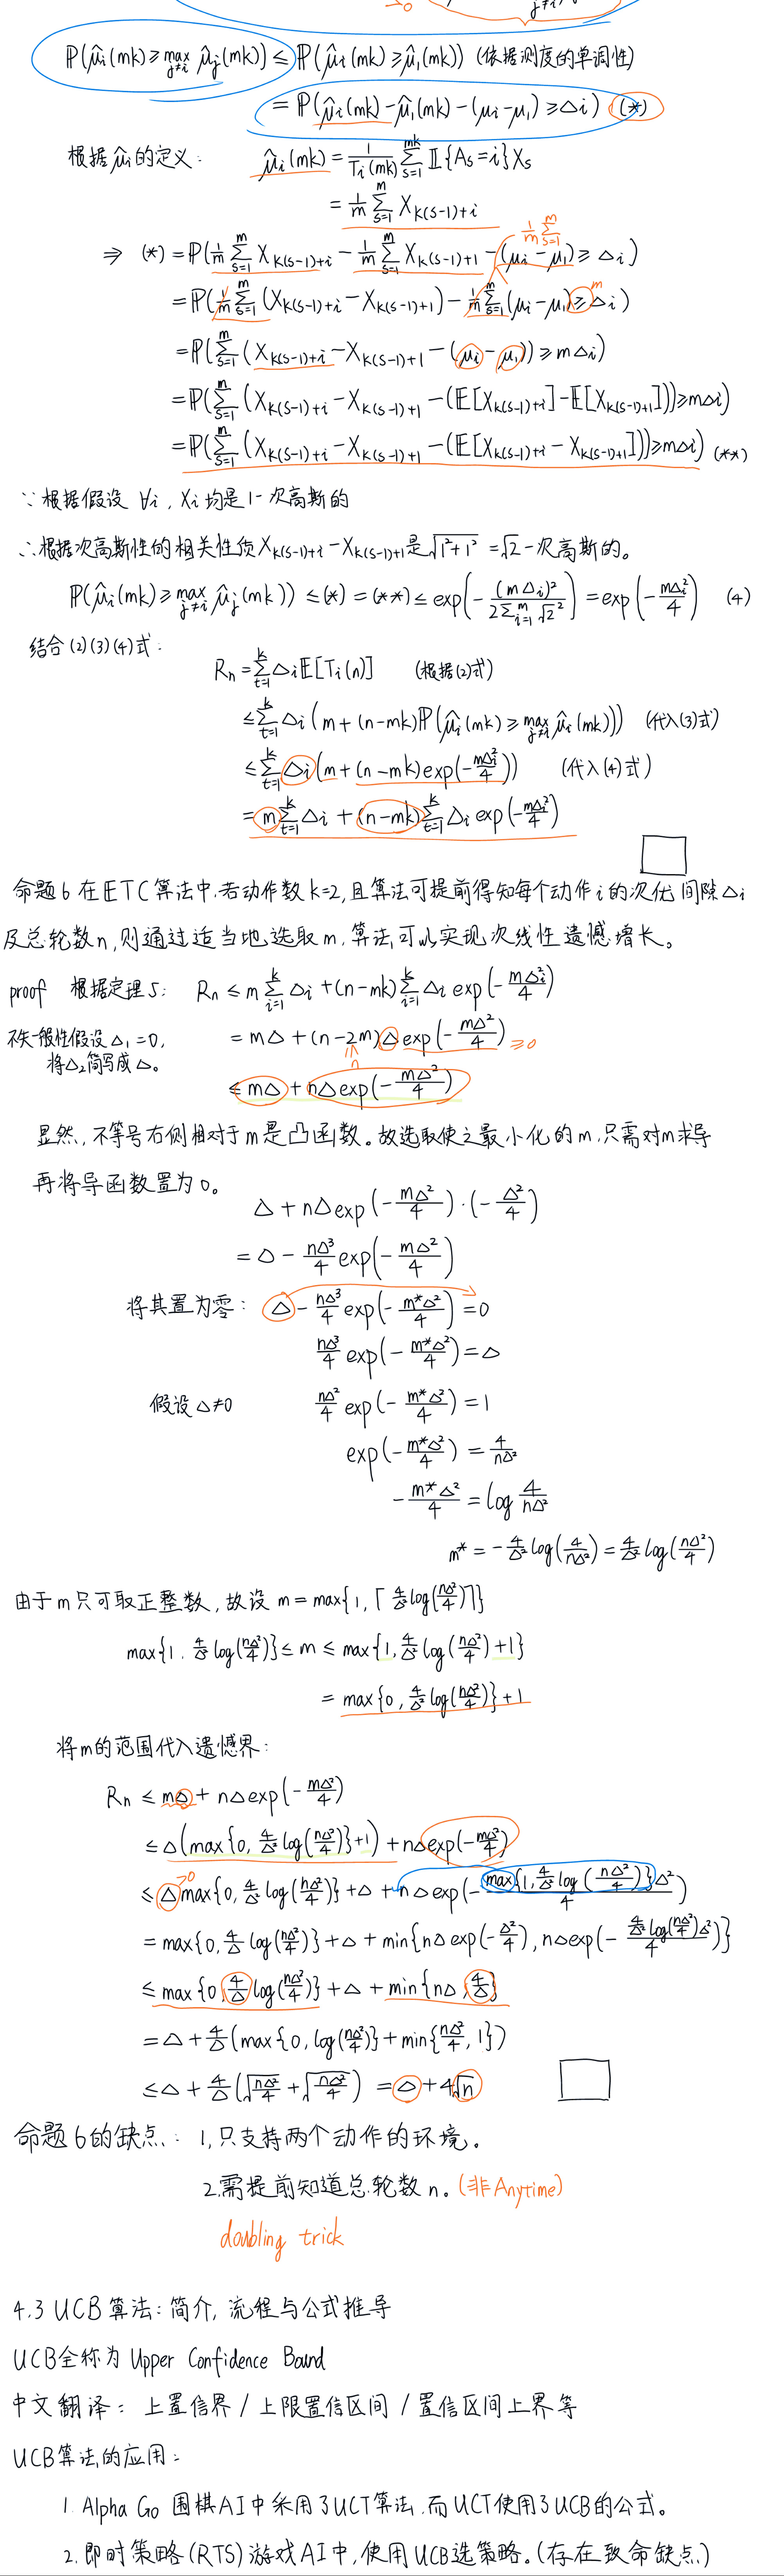 →0
j≠i
P(μ̂i(mk)≥max_{j≠i} μ̂j(mk)) ≤ P(μ̂i(mk)≥μ̂1(mk)) (依据测度的单调性)
= P(μ̂i(mk)-μ̂1(mk)-(μi-μ1)≥Δi) (*)
根据μ̂i的定义: μ̂i(mk) = 1/Ti(mk) Σ_{s=1}^{mk} 𝕀{As=i}Xs
= 1/m Σ_{s=1}^{m} X_{k(s-1)+i}
1/m Σ_{s=1}^{m}
⇒ (*) = P(1/m Σ_{s=1}^{m} X_{k(s-1)+i} - 1/m Σ_{s=1}^{m} X_{k(s-1)+1} - (μi-μ1)≥Δi)
= P(1/m Σ_{s=1}^{m} (X_{k(s-1)+i} - X_{k(s-1)+1}) - 1/m Σ_{s=1}^{m} (μi-μ1)≥ m Δi)
= P(Σ_{s=1}^{m} (X_{k(s-1)+i} - X_{k(s-1)+1} - (μi-μ1))≥mΔi)
= P(Σ_{s=1}^{m} (X_{k(s-1)+i} - X_{k(s-1)+1} - (E[X_{k(s-1)+i}] - E[X_{k(s-1)+1}]))≥mΔi)
= P(Σ_{s=1}^{m} (X_{k(s-1)+i} - X_{k(s-1)+1} - (E[X_{k(s-1)+i} - X_{k(s-1)+1}]))≥mΔi) (**)
∵根据假设 ∀i, Xi均是1-次高斯的
∴根据次高斯性的相关性质X_{k(s-1)+i} - X_{k(s-1)+1}是√(1²+1²) = √2-次高斯的。
P(μ̂i(mk)≥max_{j≠i} μ̂j(mk)) ≤(*) = (**) ≤ exp(-(mΔi)²/(2Σ_{i=1}^{m} √2²)) = exp(-mΔi²/4) (4)
结合(2)(3)(4)式:
Rn = Σ_{t=1}^{k} Δi E[Ti(n)] (根据(2)式)
≤ Σ_{t=1}^{k} Δi (m+(n-mk)P(μ̂i(mk)≥max_{j≠i} μ̂i(mk))) (代入(3)式)
≤ Σ_{t=1}^{k} Δi (m+(n-mk)exp(-mΔi²/4)) (代入(4)式)
= m Σ_{t=1}^{k} Δi + (n-mk) Σ_{t=1}^{k} Δi exp(-mΔi²/4)
命题6 在ETC算法中,若动作数k=2,且算法可提前得知每个动作i的次优间隙Δi
及总轮数n,则通过适当地选取m,算法可以实现次线性遗憾增长。
proof 根据定理5: Rn ≤ m Σ_{i=1}^{k} Δi + (n-mk) Σ_{i=1}^{k} Δi exp(-mΔi²/4)
不失一般性假设Δ1=0, = mΔ + (n-2m)Δ exp(-mΔ²/4) ≥0
将Δ2简写成Δ。 n
≤ mΔ + nΔexp(-mΔ²/4)
显然,不等号右侧相对于m是凸函数。故选取使之最小化的m,只需对m求导
再将导函数置为0。
Δ + nΔexp(-mΔ²/4)·(-Δ²/4)
= Δ - nΔ³/4 exp(-mΔ²/4)
将其置为零: Δ - nΔ³/4 exp(-m*Δ²/4) = 0
nΔ³/4 exp(-m*Δ²/4) = Δ
假设Δ≠0 nΔ²/4 exp(-m*Δ²/4) = 1
exp(-m*Δ²/4) = 4/nΔ²
-m*Δ²/4 = log 4/nΔ²
m* = -4/Δ² log(4/nΔ²) = 4/Δ² log(nΔ²/4)
由于m只可取正整数,故设 m = max{1,⌈4/Δ² log(nΔ²/4)⌉}
max{1, 4/Δ² log(nΔ²/4)} ≤ m ≤ max{1, 4/Δ² log(nΔ²/4)+1}
= max{0, 4/Δ² log(nΔ²/4)}+1
将m的范围代入遗憾界:
Rn ≤ mΔ + nΔexp(-mΔ²/4)
≤ Δ(max{0, 4/Δ² log(nΔ²/4)}+1) + nΔexp(-mΔ²/4)
≤ Δ →0 max{0, 4/Δ² log(nΔ²/4)} + Δ + nΔexp(-max{1, 4/Δ² log(nΔ²/4)}Δ²/4)
= max{0, 4/Δ log(nΔ²/4)} + Δ + min{nΔexp(-Δ²/4), nΔexp(-4/Δ² log(nΔ²/4)Δ²/4)}
≤ max{0, 4/Δ log(nΔ²/4)} + Δ + min{nΔ, 4/Δ}
= Δ + 4/Δ (max{0, log(nΔ²/4)} + min{nΔ²/4, 1})
≤ Δ + 4/Δ (√(nΔ²/4) + √(nΔ²/4)) = Δ + 4√n
命题6的缺点: 1,只支持两个动作的环境。
2,需提前知道总轮数n。(非Anytime)
doubling trick
4.3 UCB算法:简介,流程与公式推导
UCB全称为 Upper Confidence Bound
中文翻译: 上置信界 / 上限置信区间 / 置信区间上界等
UCB算法的应用:
1. Alpha Go 围棋AI中采用了UCT算法,而UCT使用了UCB的公式。
2. 即时策略(RTS)游戏AI中,使用UCB选策略。(存在致命缺点)